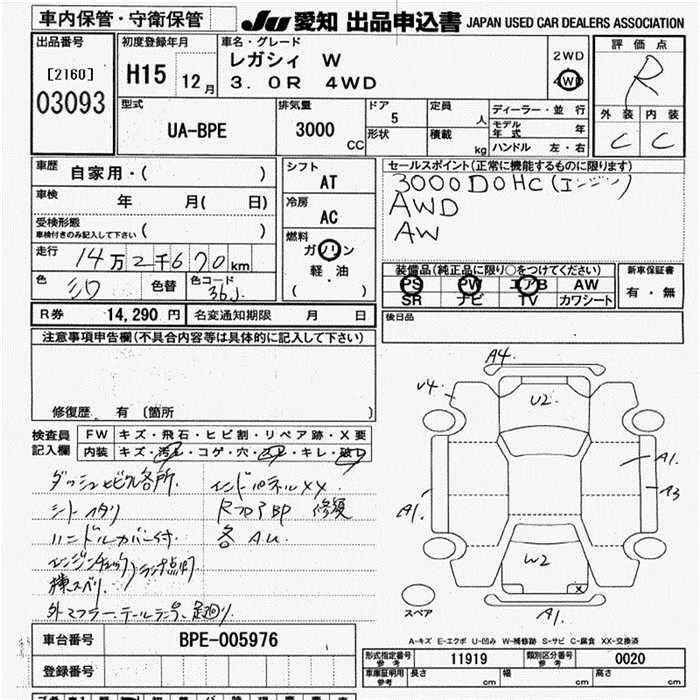 車内保管・守衛保管
JU 愛知 出品申込書 JAPAN USED CAR DEALERS ASSOCIATION
出品番号
[2160]
03093
初度登録年月
H15 12月
車名・グレード
レガシィ W
3.0R 4WD
2WD
4WD
評価点
R
外装 内装
C C
型式
UA-BPE
排気量
3000 CC
ドア
5
形状
定員
人
積載
kg
ディーラー・並行
モデル年式 年
ハンドル 左・右
車歴 自家用・( )
車検 年 月( 日)
受検形態
車検付きのみ記入して下さい ( )
走行 14万2千670km
色 シロ 色替 色コード 36J
シフト
AT
冷房
AC
燃料
ガソリン
軽・油
( )
セールスポイント(正常に機能するものに限ります)
3000DOHC(エンジン)
AWD
AW
装備品(純正品に限り○をつけてください)
PS PW エアB AW
SR ナビ TV カワシート
新車保証書
有・無
R券 14,290円 名変通知期限 月 日
後日品
注意事項申告欄(不具合内容等は具体的に記入して下さい)
修復歴 有 (箇所 )
検査員記入欄
FW キズ・飛石・ヒビ割・リペア跡・X要
内装 キズ・汚れ・コゲ・穴・スレ・キレ・破レ
ダッシュヒビ各所.
シートヘタリ
ハンドルカバー付
エンジンチェックランプ点灯
横スベリ
外マフラー、テールランプ、足廻り
インドパネルXX.
RフロアBP 修復
各AU.
A4
U4
U2
A1.
A3
A1.
W2
X
A1.
スペア
A-キズ E-エクボ U-凹み W-補修跡 S-サビ C-腐食 XX-交換済
車台番号 BPE-005976
登録番号
形式指定番号 参考 11919 類別区分番号 参考 0020
車庫証明用 参考 長さ cm 幅 cm 高さ cm